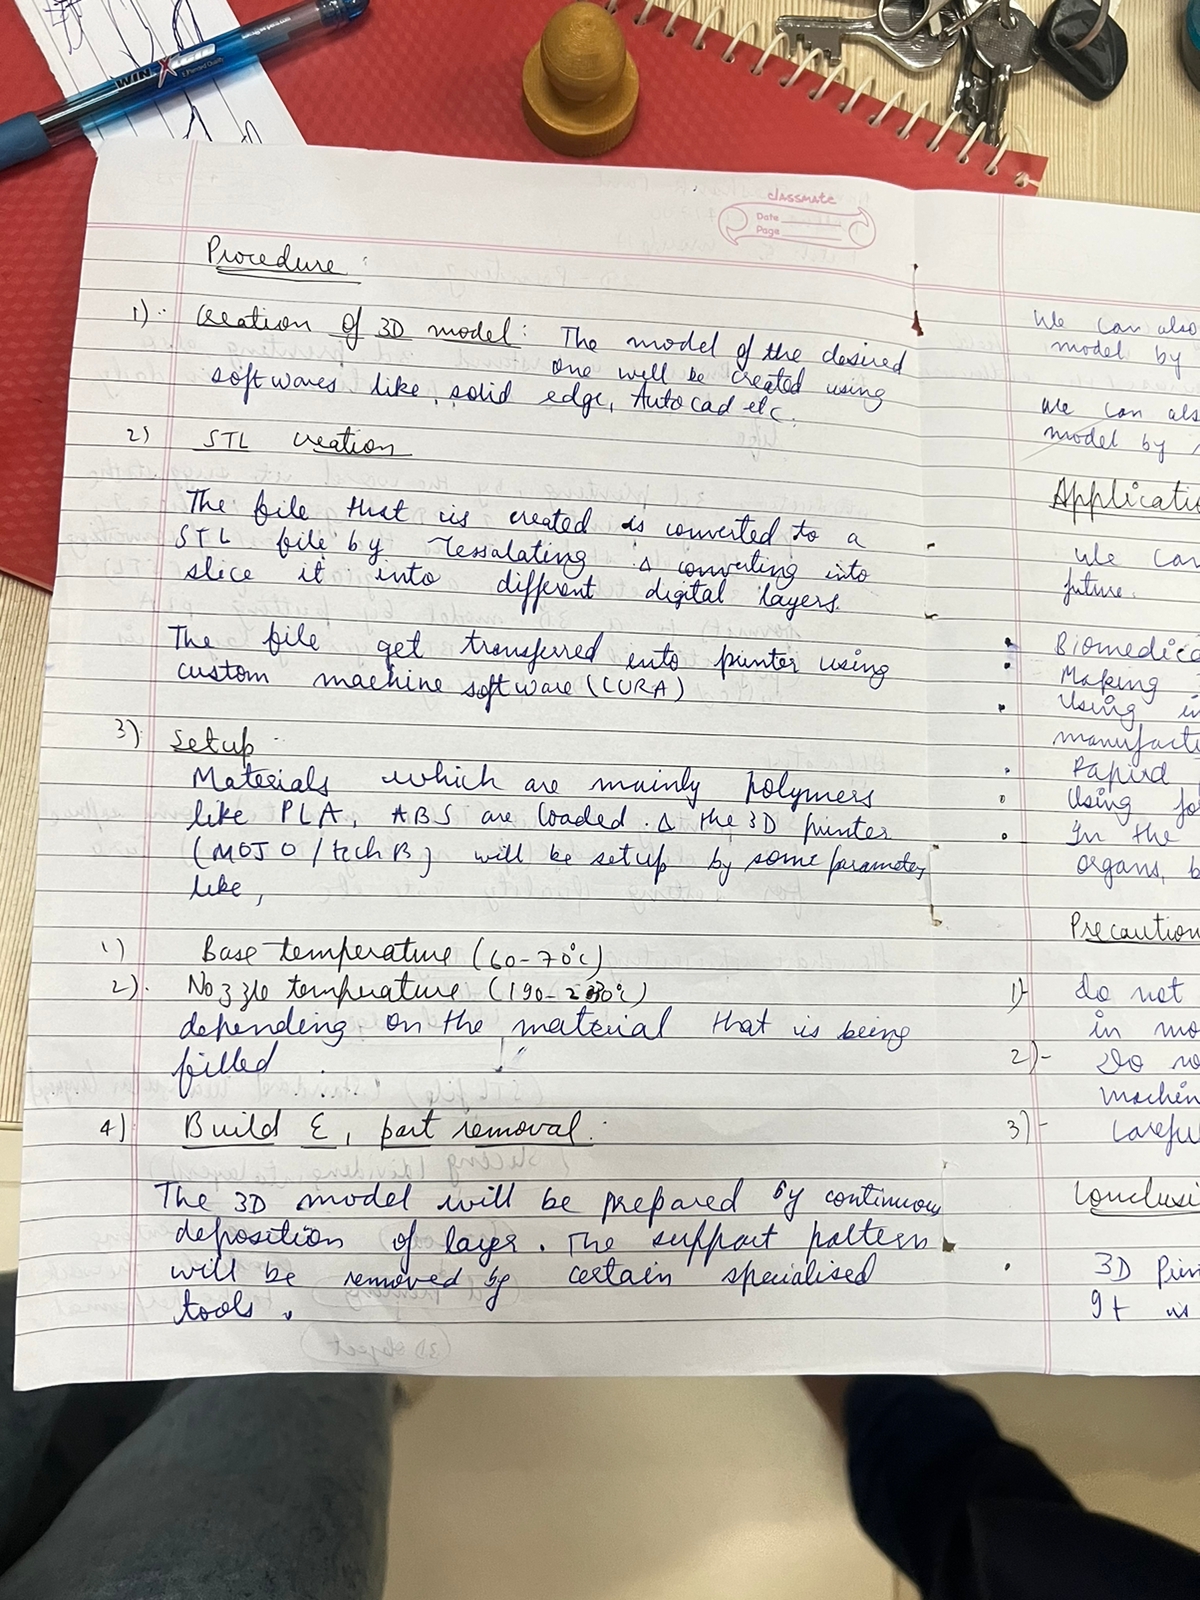 WIN X
classmate
Date
Page
Procedure :
1) Creation of 3D model : The model of the desired
one will be created using
softwares like, solid edge, Autocad etc.
2) STL creation
The file that is created is converted to a
STL file by Tessalating & converting into
slice it into different digital layers.
The file get transferred into printer using
custom machine software (CURA)
3) Setup
Materials which are mainly polymers
like PLA, ABS are loaded. & the 3D printer
(MOJO / tech B) will be setup by some parameters
like,
1) Base temperature (60-70°C)
2). Nozzle temperature (190-230°C)
depending on the material that is being
filled
4) Build &, part removal :
The 3D model will be prepared by continuous
deposition of layer. The support pattern
will be removed by certain specialised
tools.
We can also
model by
We can als
model by
Applicatio
We can
future.
• Biomedica
• Making
• Using in
manufactu
• Rapird
• Using fo
• In the
organs, b
Precaution
1)- do not
in mo
2)- Do no
machin
3)- Carefu
Conclusi
• 3D Prin
It is